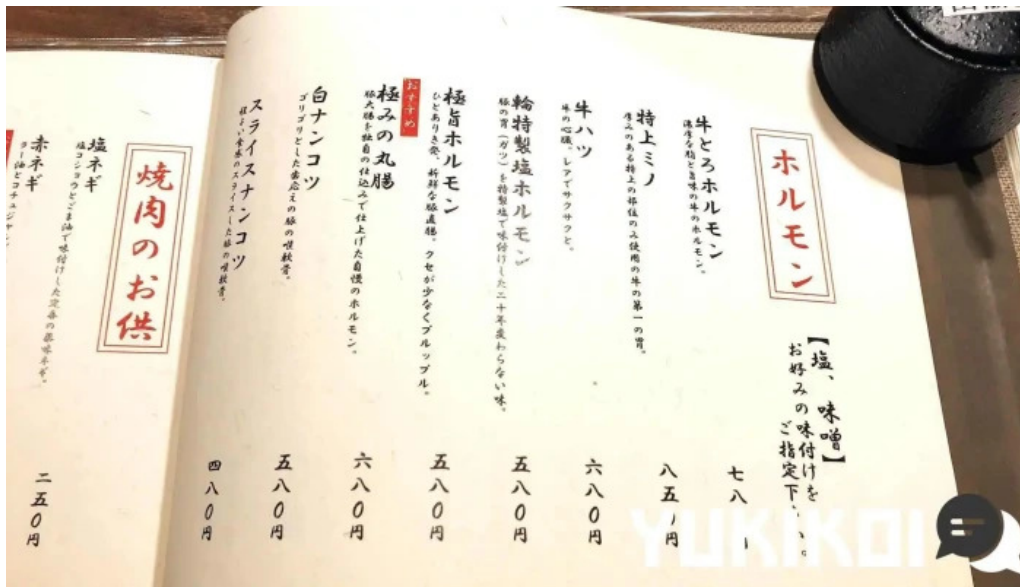 ホルモン
【塩、味噌】
お好みの味付けを
ご指定下
牛とろホルモン
濃厚な脂と旨味の牛の小ホルモン。
七八
特上ミノ
厚みのある特上の部位のみ使用の牛の第一の胃。
八五 円
牛ハツ
牛の心臓。レアでサクサクと。
六八〇円
輪特製塩ホルモン
豚の胃(ガツ)を特製塩で味付けした二十年変わらない味。
五八〇円
極旨ホルモン
ひと手あり き発、新鮮な豚直腸。クセが少なくプルップル。
五八〇円
おすすめ
極みの丸腸
豚大腸を独自の仕込みで仕上げた自慢のホルモン。
六八〇円
白ナンコツ
ゴリゴリとした歯応えの豚の喉軟骨。
五八〇円
スライスナンコツ
軽い食感のスライスした豚の喉軟骨。
四八〇円
焼肉のお供
塩ネギ
塩コショウとごま油で味付けした定番の薬味ネギ。
赤ネギ
ラー油とコチュジャン
二五〇円
YUKIKOI